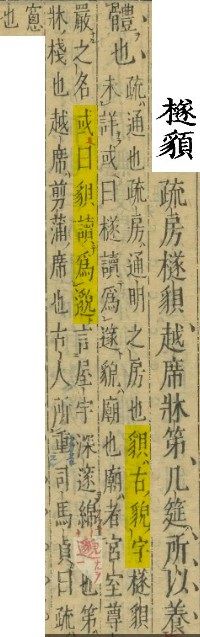 檖䫉
疏房檖䫉越席牀笫几筵所以養
體也
疏通也疏房通明之房也䫉古貌字檖䫉
未詳或曰檖讀爲邃䫉廟也廟者宮室尊
嚴之名或曰䫉讀爲邈言屋宇深邃緜邈也笫
牀棧也越席剪蒲席也古人所重司馬貞曰疏
窻也